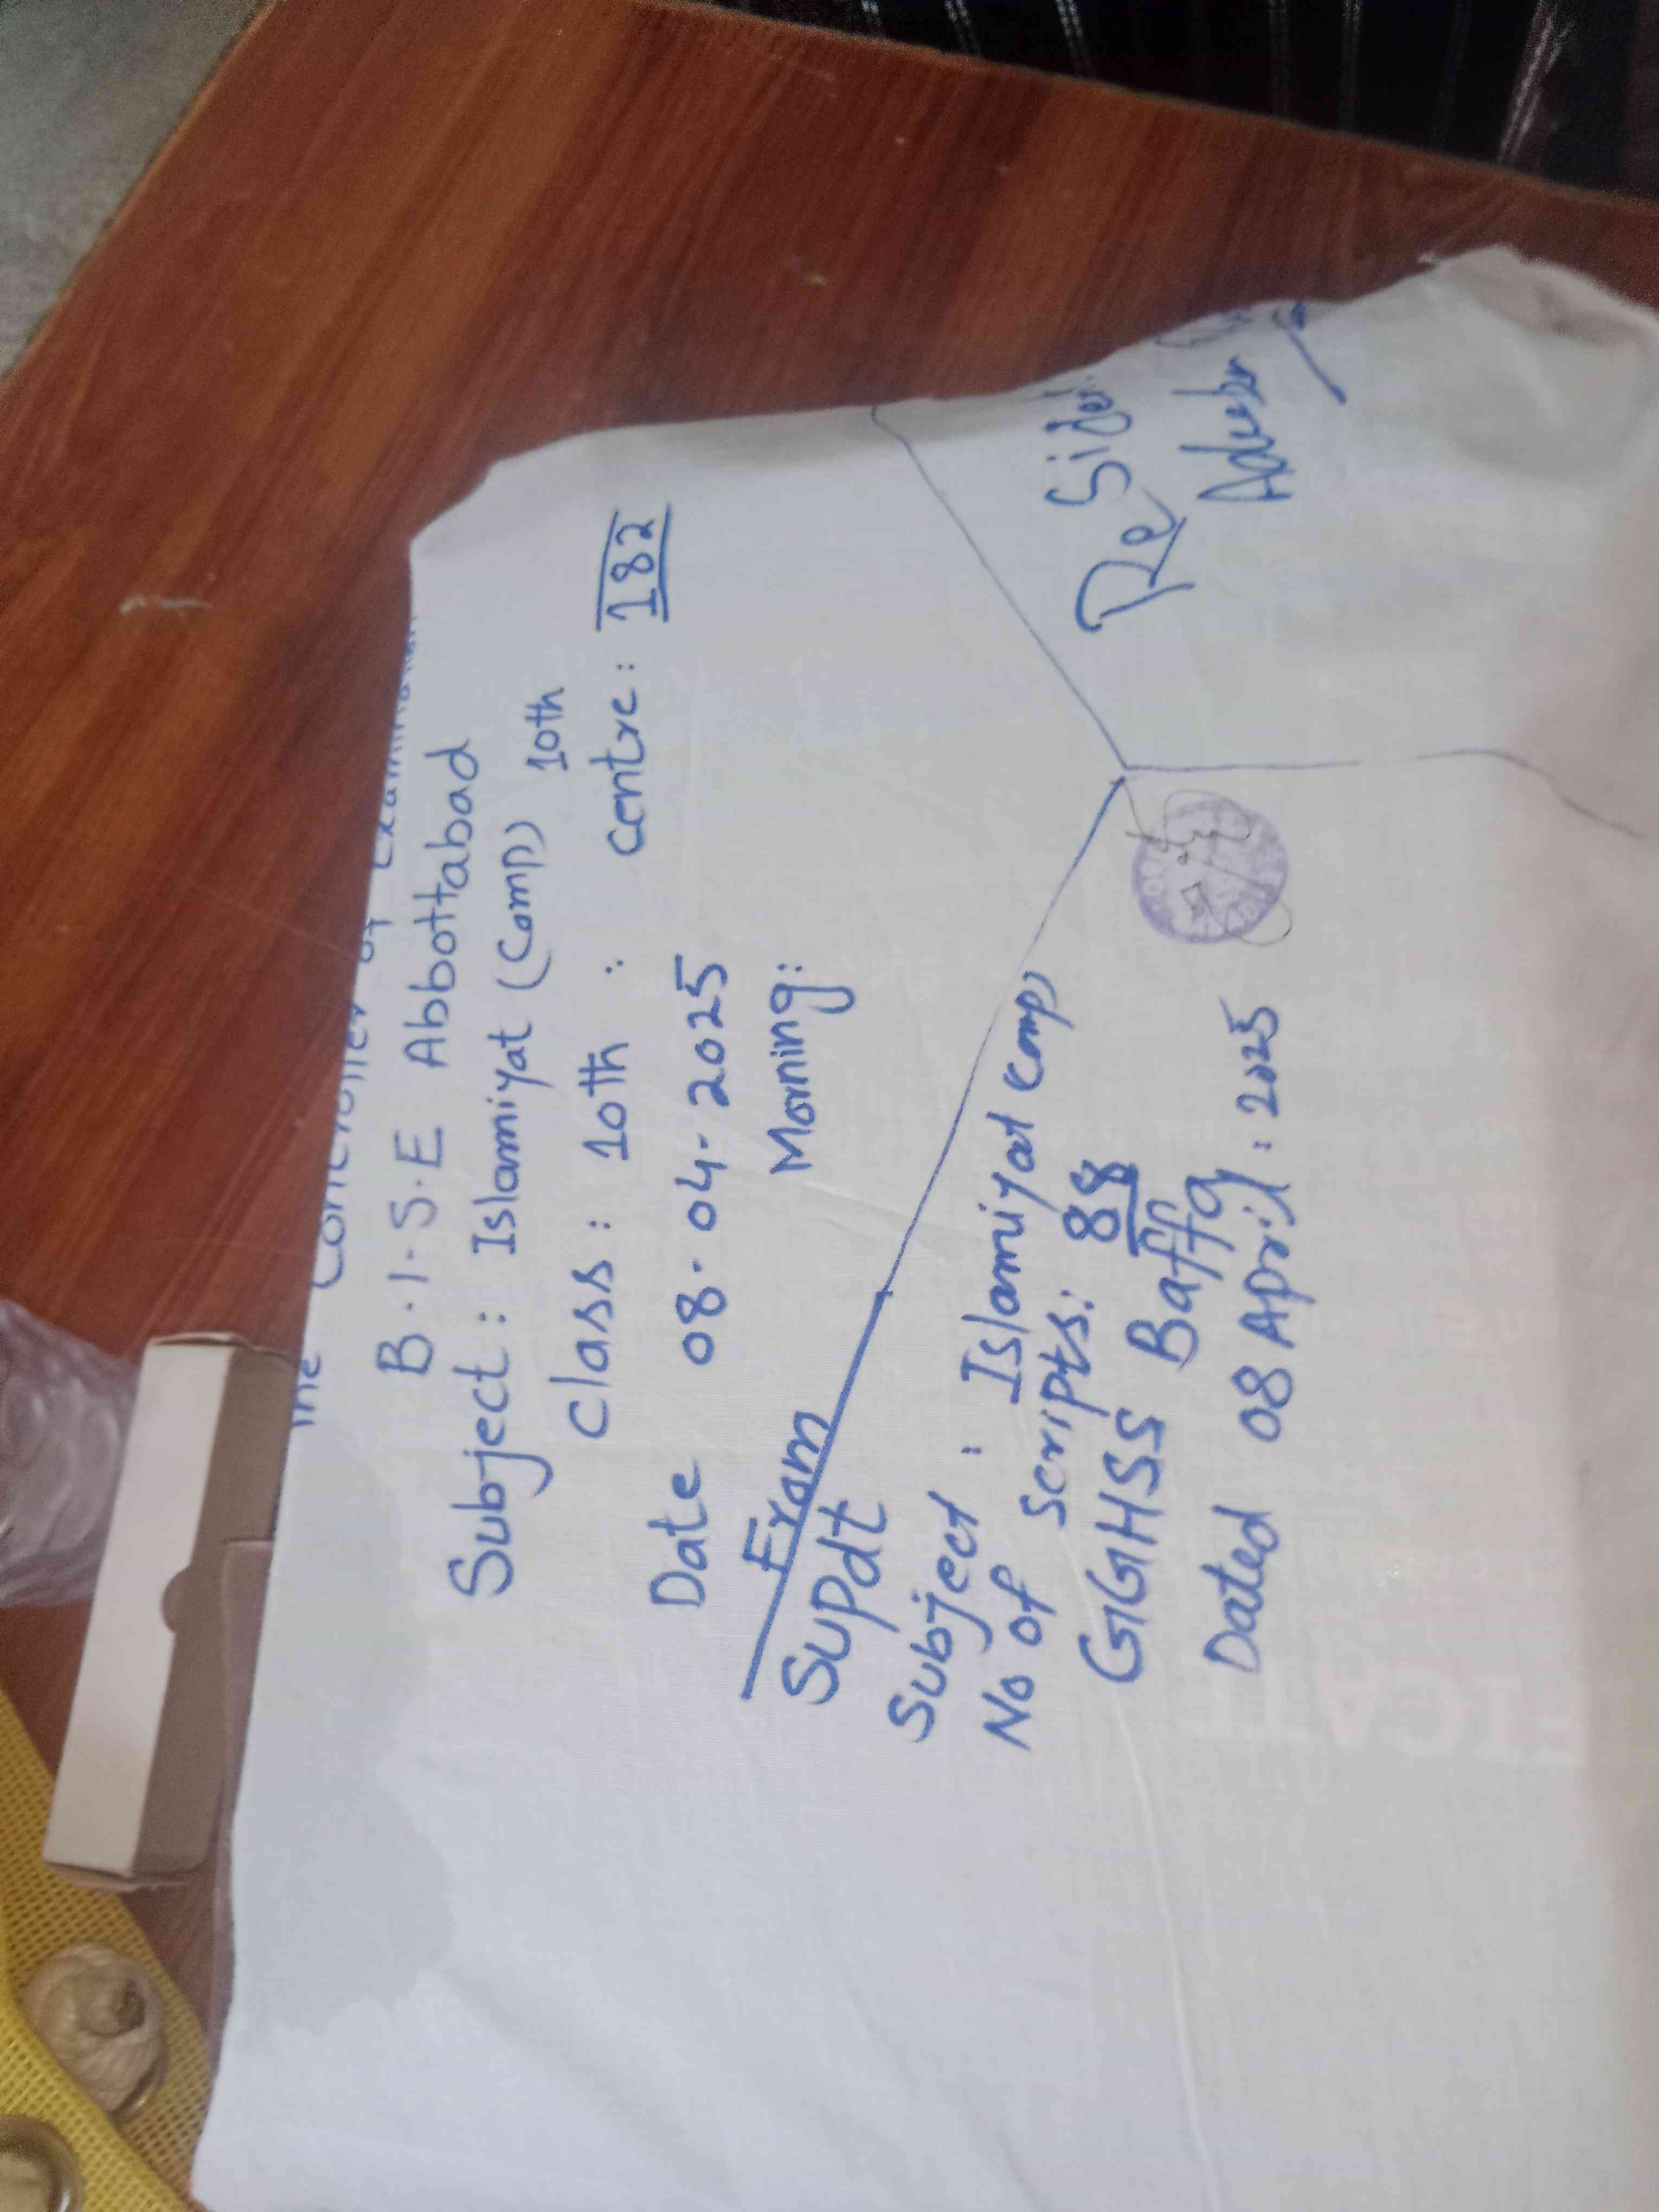 The Controller of Examination
B.I.S.E Abbottabad
Subject: Islamiyat (Comp) 10th
Class: 10th : Centre: 182
Date 08-04-2025
Morning:
From
Supdt
Subject : Islamiyat Comp
No of scripts: 88
GGHSS Baffa
Dated 08 April: 2025